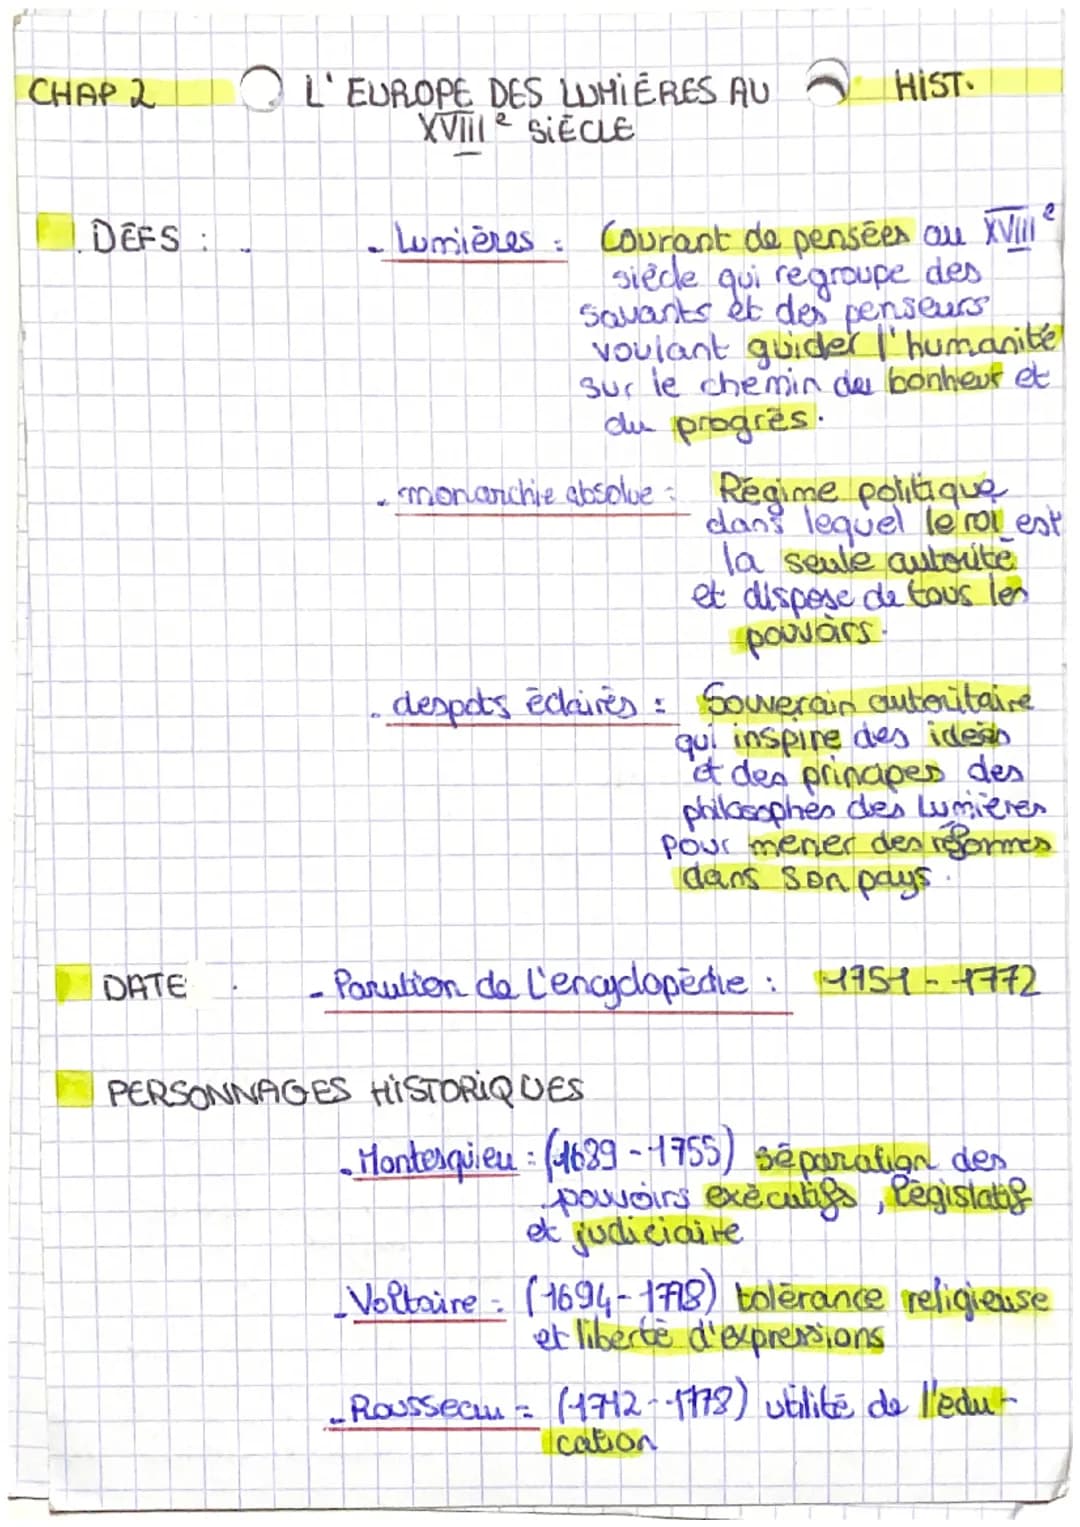 CHAP 2 L'EUROPE DES LUMIÈRES AU HIST.
XVIIIe SIÈCLE
DÉFS : - Lumières : Courant de pensées au XVIIIe
siècle qui regroupe des
savants et des penseurs
voulant guider l'humanité
sur le chemin du bonheur et
du progrès.
- monarchie absolue : Régime politique
dans lequel le roi est
la seule autorité
et dispose de tous les
pouvoirs.
- despots éclairés : Souverain autoritaire
qui inspire des idées
et des principes des
philosophes des Lumières
pour mener des réformes
dans son pays.
DATE - Parution de l'encyclopédie : 1751 - 1772
PERSONNAGES HISTORIQUES
- Montesquieu : (1689 - 1755) séparation des
pouvoirs exécutifs, législatif
et judiciaire
- Voltaire : (1694 - 1778) tolérance religieuse
et liberté d'expressions
- Rousseau = (1712 - 1778) utilité de l'édu-
cation